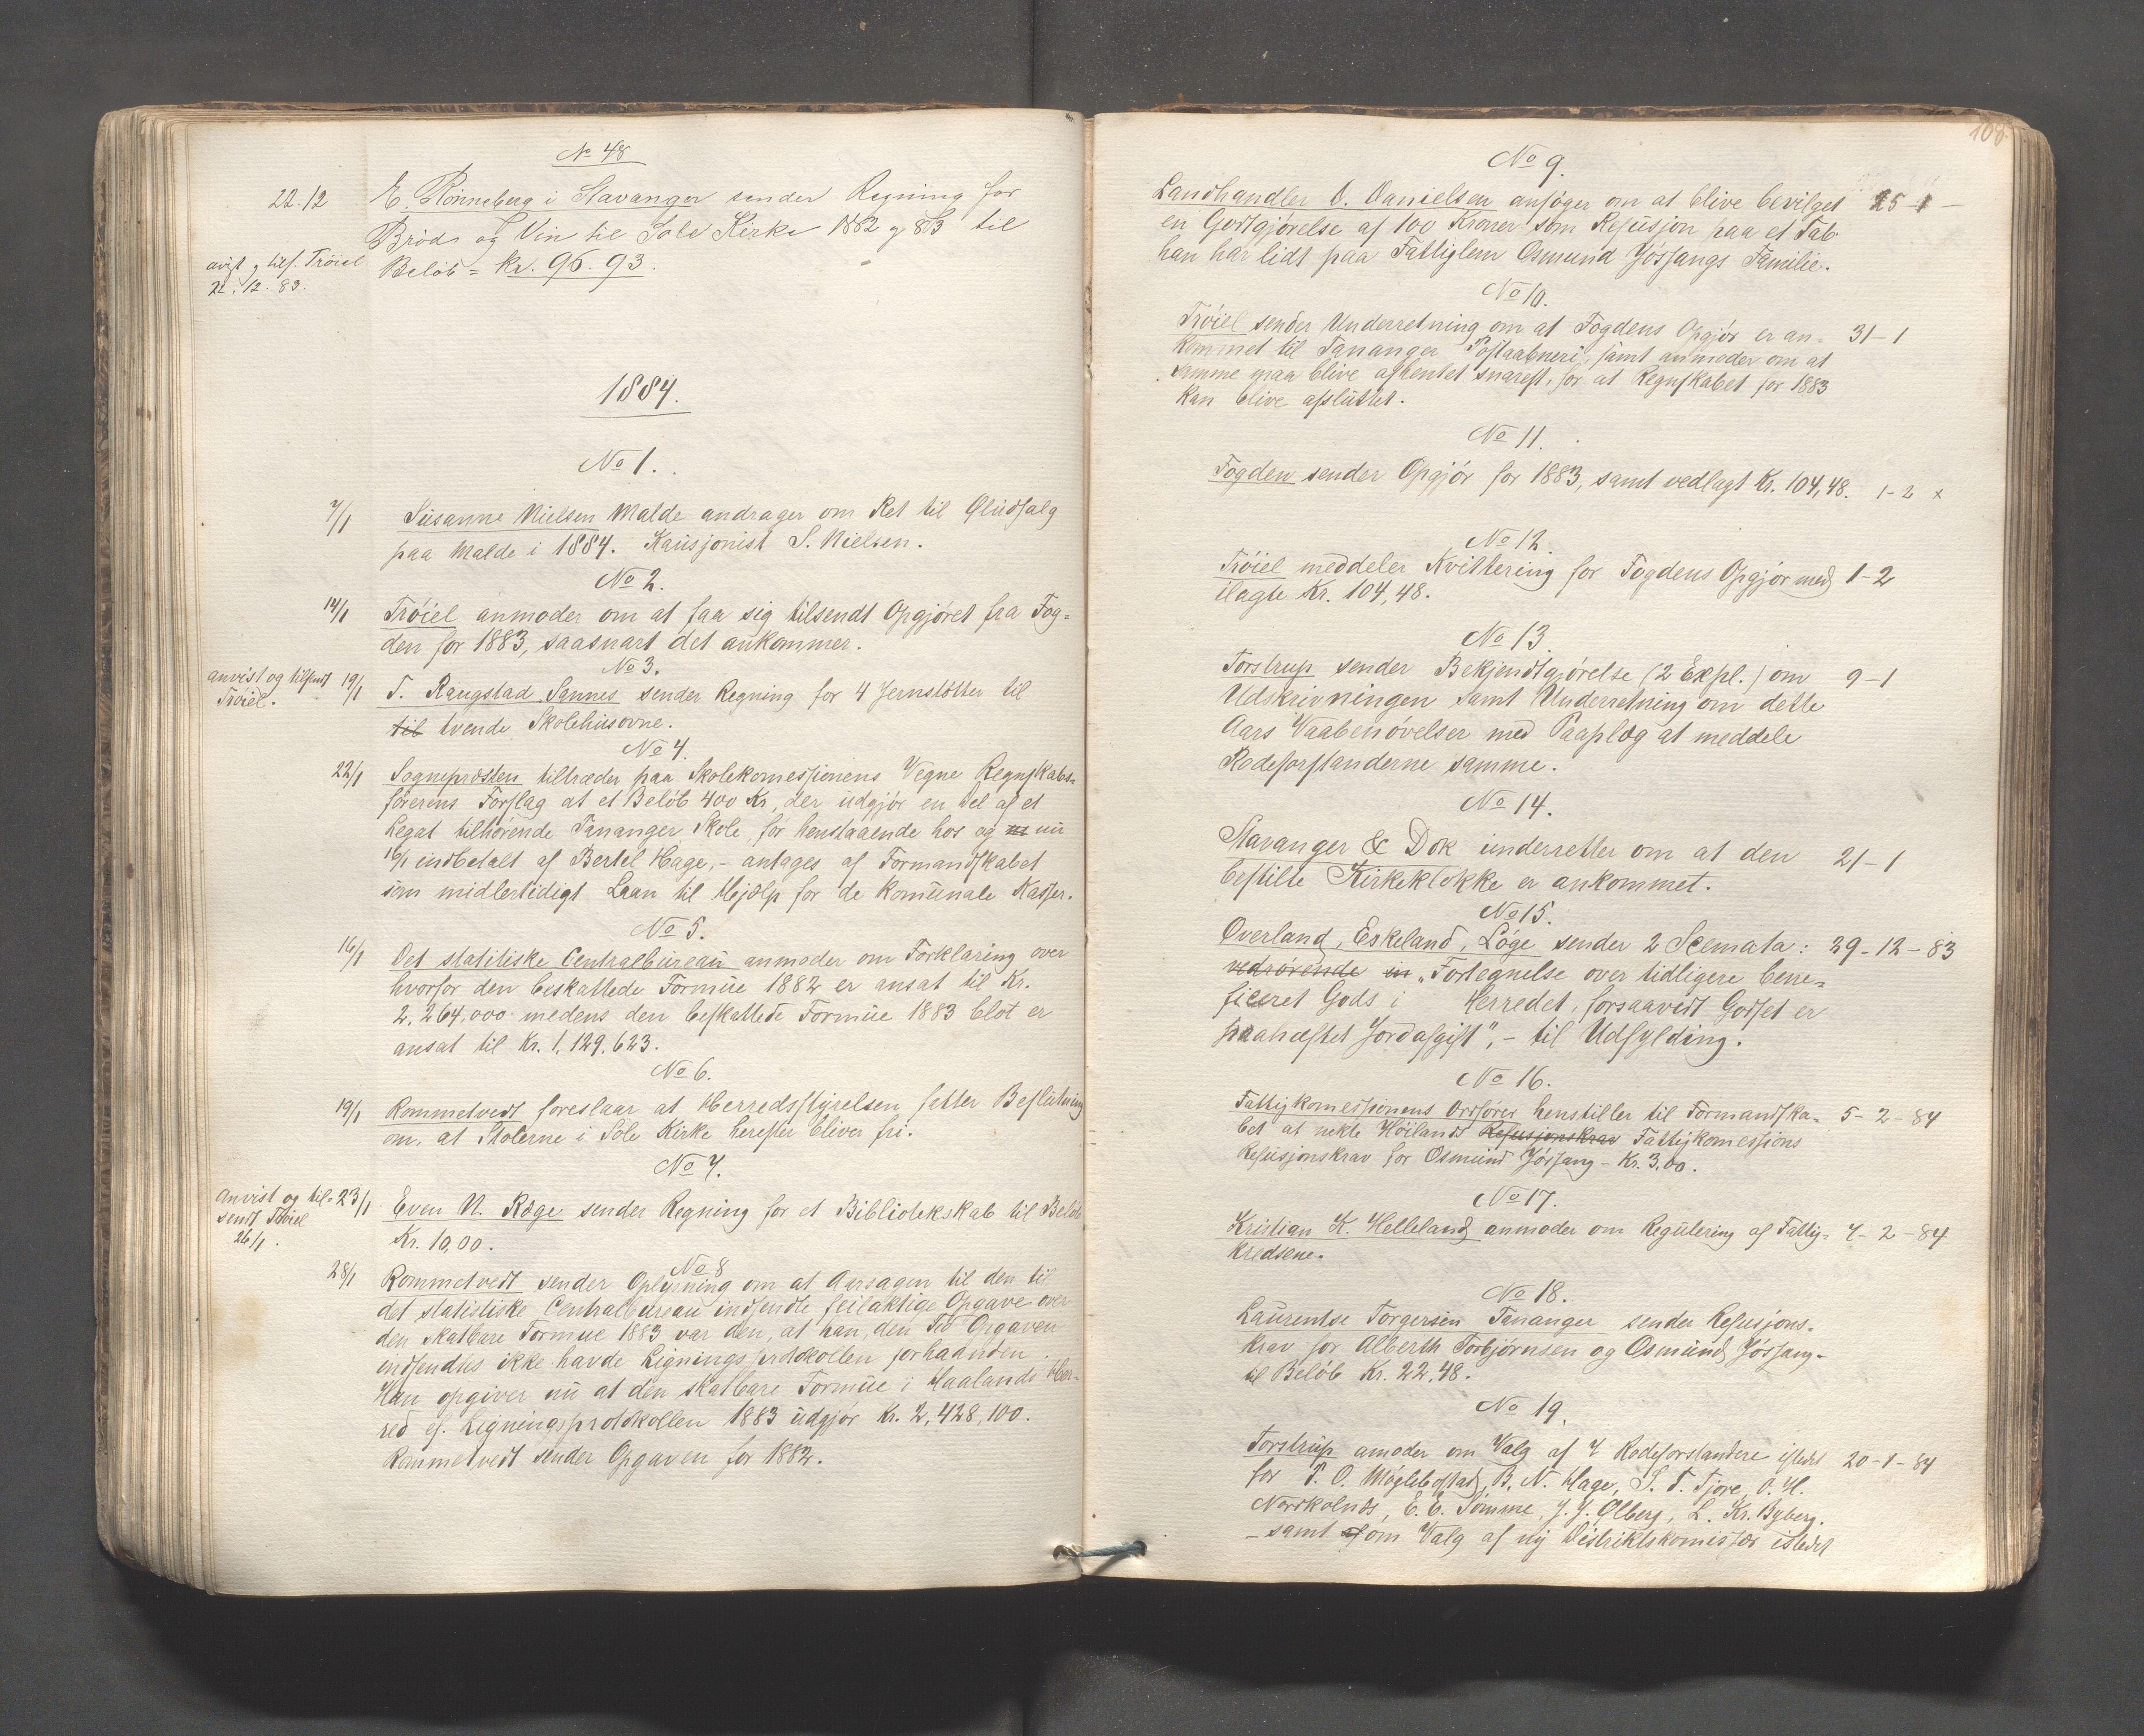 No 48
22.12 E. Rönneberg i Stavanger sender Regning for
Bröd og Vin til Sole Kirke 1882 og 83 til
Belöb = Kr. 96.93.
avist og tils. Tröiel
22.12.83.
1884.
No 1.
7/1 Susanne Nielsen Malde andrager om Ret til Øludsalg
paa Malde i 1884. Kausjonist S. Nielsen.
No 2.
14/1 Tröiel anmoder om at faa sig tilsendt Opgjöret fra Fog=
den for 1883, saasnart det ankommer.
No 3.
anvist og tilsendt 19/1 T. Raugstad Sannes sender Regning for 4 Jernstötter til
Tröiel.
til tvende Skolehusovne.
No 4.
22/1 Sognepræsten tiltræder paa Skolekomessionens Vegne Regnskabs=
förerens Forslag at et Belöb 400 Kr, der udgjör en Del af et
Legat tilhörende Tananger Skole, för henstaaende hos og nu
16/1 indbetalt af Bertel Hage, - antages af Formandskabet
som midlertidigt Laan til Hjælp for de komunale Kasser.
No 5.
16/1 Det statitiske Centralbureau anmoder om Forklaring over
hvorfor den beskattede Formue 1882 er ansat til Kr.
2,264,000 medens den beskattede Formue 1883 blot er
ansat til Kr. 1,129,623.
No 6.
19/1 Rommetvedt foreslaar at Herredsstyrelsen fatter Beslutning
om, at Stolerne i Sole Kirke herefter bliver fri.
No 7.
anvist og til= 23/1 Even N. Ræge sender Regning for et Bibliotekskab til Belöb
sendt Tröiel
Kr. 10,00.
26/1.
No 8
28/1 Rommetvedt sender Oplysning om at Aarsagen til den til
det statistiske Centralbureau indsendte feilaktige Opgave over
den skatbare Formue 1883 var den, at han, den Tid Opgaven
indsendtes ikke havde Ligningsprotokollen forhaanden.
Han opgiver nu at den skatbare Formue i Haalands Her-
red ef. Ligningsprotokollen 1883 udgjör Kr. 2,428,100.
Rommetvedt sender Opgaven for 1882.
108
No 9.
Landhandler O. Danielsen ansöger om at blive bevilget 25-1-
en Godtgjörelse af 100 Kroner som Refusjon paa et Tab
han har lidt paa Fattiglem Osmund Jösfangs Familie.
No 10.
Tröiel sender Underretning om at Fogdens Opgjör er an= 31-1
kommet til Tananger Postaabneri, samt anmoder om at
samme maa blive afhentet snarest, for at Regnskabet for 1883
kan blive afsluttet.
No 11.
Fogden sender Opgjör for 1883, samt vedlagt Kr. 104,48. 1-2 x
No 12.
Tröiel meddeler Kvittering for Fogdens Opgjör med 1-2
ilagte Kr. 104,48.
No 13.
Torstrup sender Bekjendtgjörelse (2 Expl.) om 9-1
Udskrivningen samt Underretning om dette
Aars Vaabenövelser med Paaplæg at meddele
Rodeforstanderne samme.
No 14.
Stavanger & Dok underretter om at den 21-1
bestilte Kirkeklokke er ankommet.
No 15.
Overland, Eskeland, Löge sender 2 Scemata: 29-12-83
vedrörende in „Fortegnelse over tidligere bene=
ficeret Gods i Herredet, forsaavidt Godset er
paahæftet Jordafgift", - til Udfylding.
No 16.
Fattigkomessionens Ordförer henstiller til Formandska= 5-2-84
bet at nekte Höilands Refusjonskrav Fattigkomessions
Refusjonskrav for Osmund Jösfang - Kr. 3,00.
No 17.
Kristian K. Helleland anmoder om Regulering af Fattig= 7-2-84
kredsene.
No 18.
Laurentse Torgersen Tananger sender Refusjons=
krav for Alberth Torbjörnsen og Osmund Jösfang-
til Belöb Kr. 22,48.
No 19.
Torstrup amoder om Valg af 7 Rodeforstandere istedet 20-1-84
for P. O. Möglebostad, B. N. Hage, S. T. Tjore, O. H.
Norskolnds, E. E. Sömme, J. J. Ølberg, L. Kr. Byberg.
- samt om Valg af ny Distriktskomisær istedet